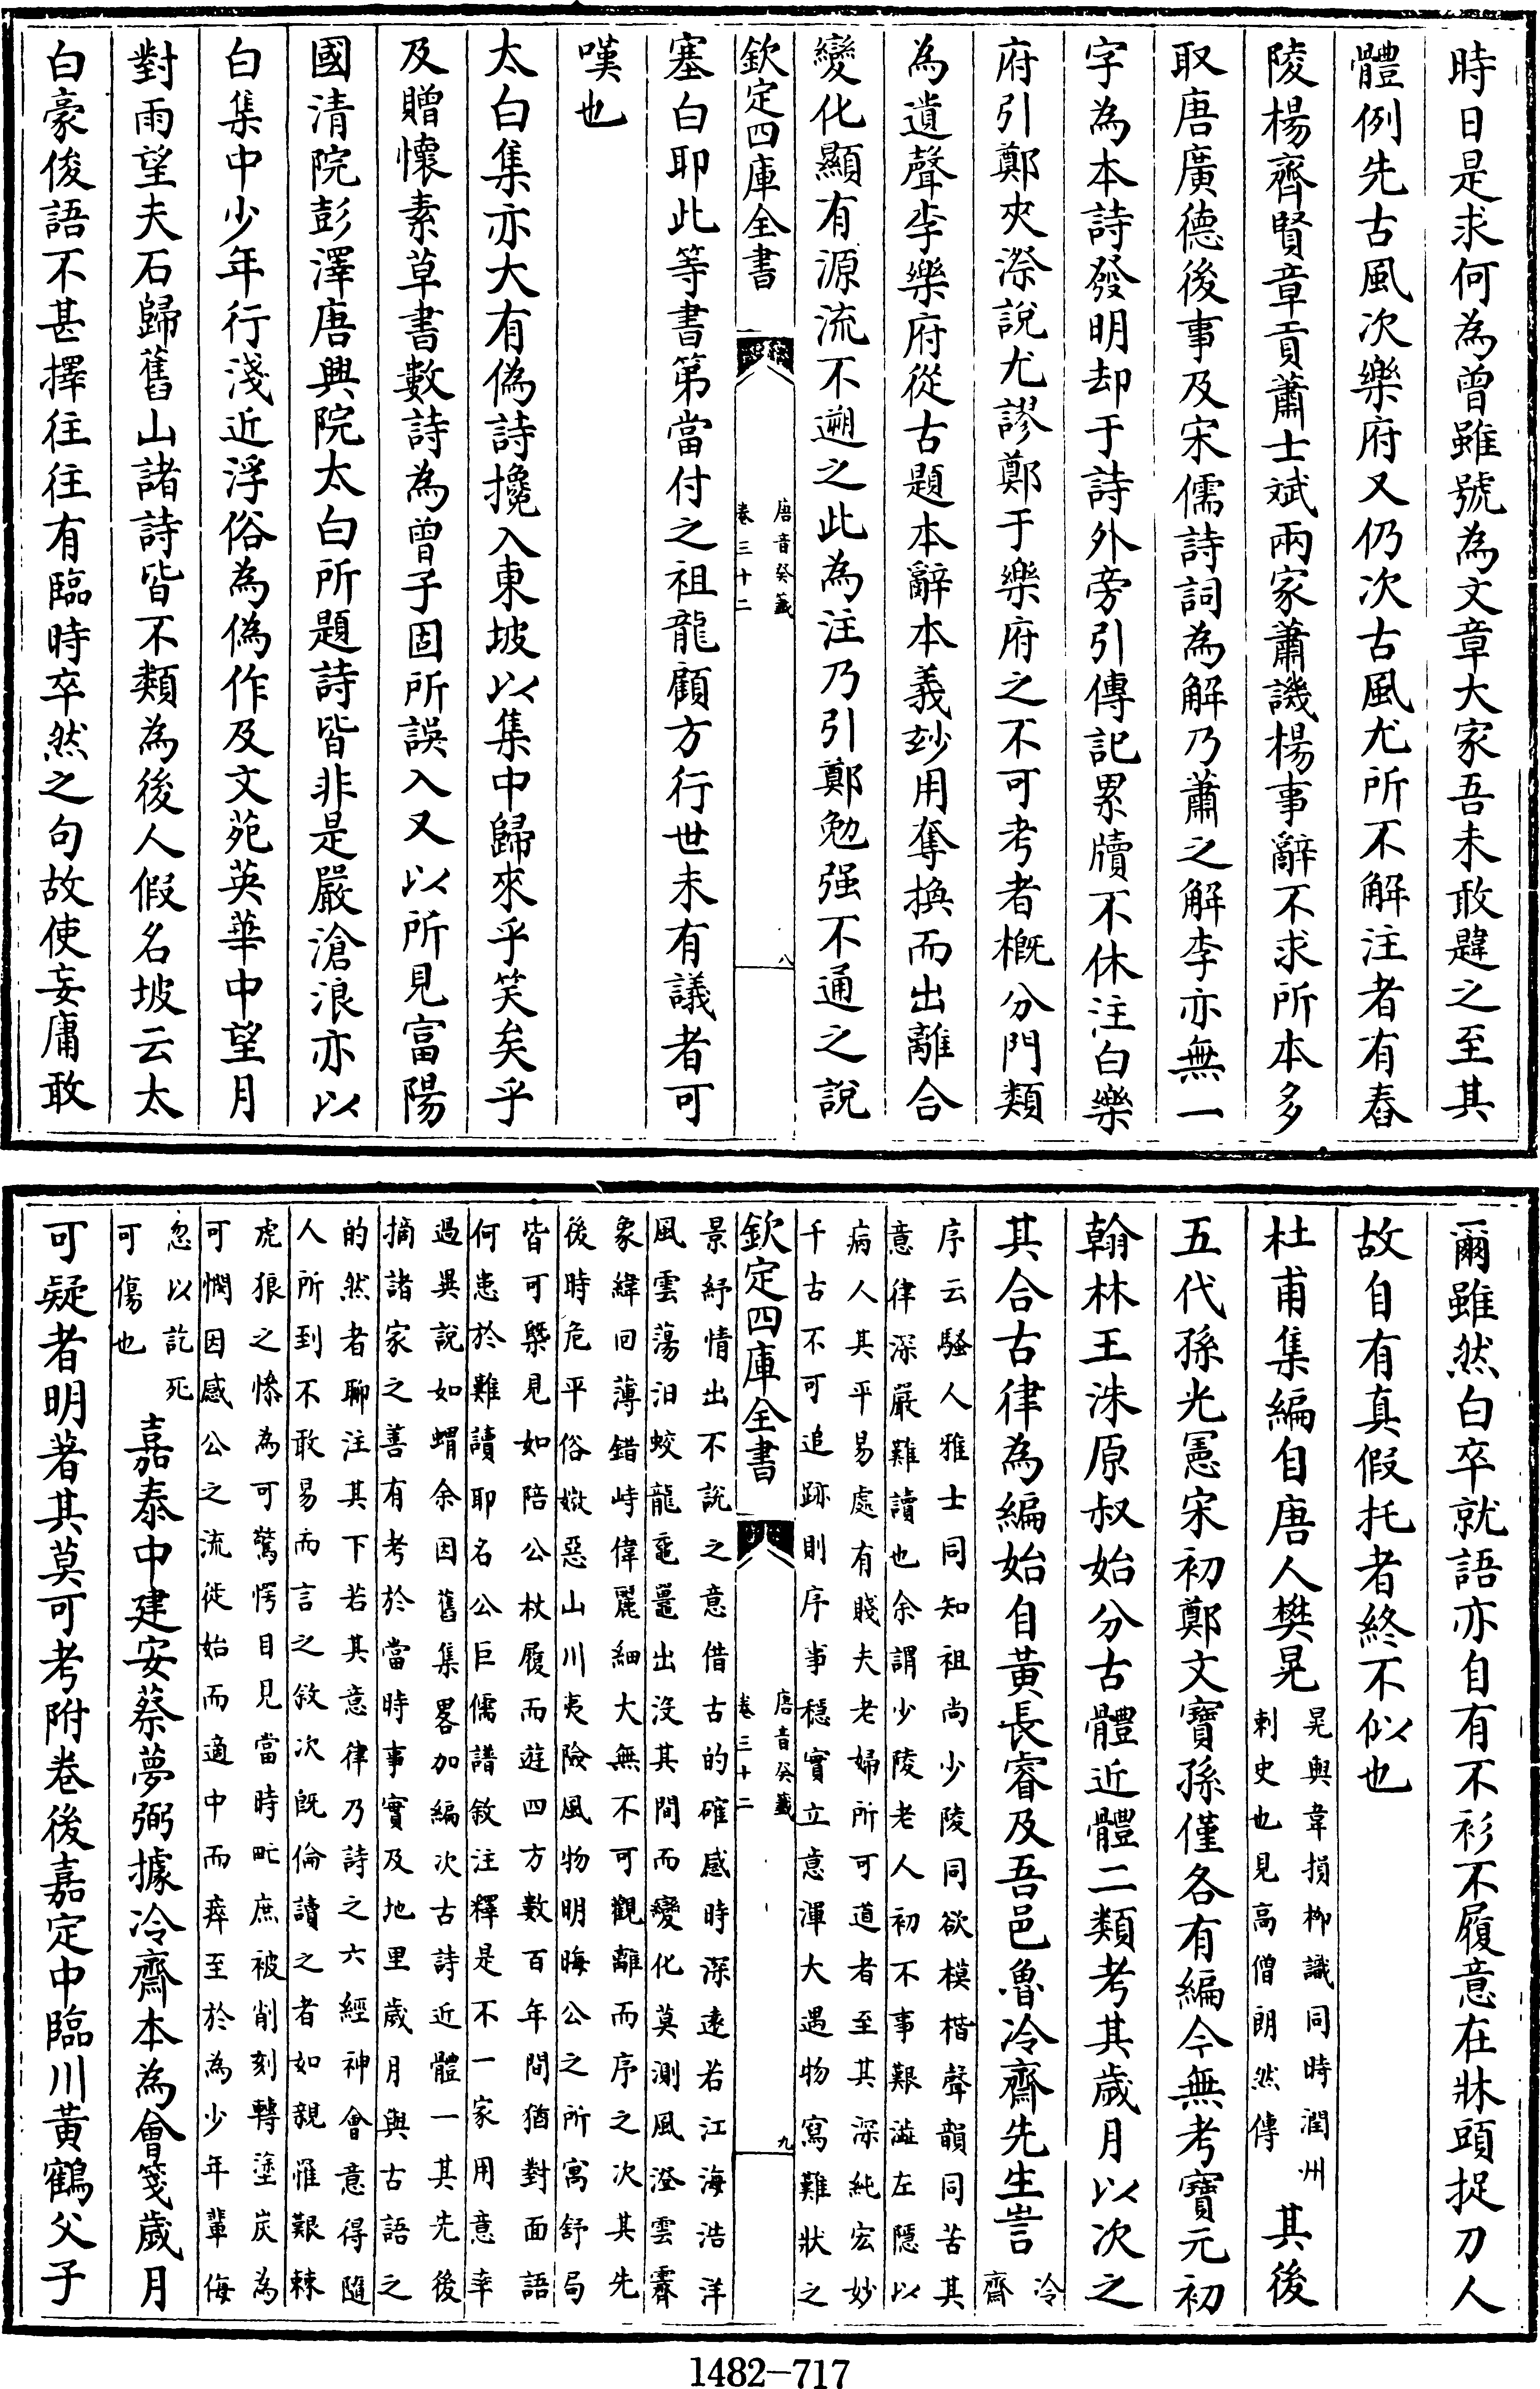 時日是求何為曾雖號為文章大家吾未敢韙之至其
體例先古風次樂府又仍次古風尤所不解注者有舂
陵楊齊賢章貢蕭士斌兩家蕭譏楊事辭不求所本多
取唐廣德後事及宋儒詩詞為解乃蕭之解李亦無一
字為本詩發明却于詩外旁引傳記累牘不休注白樂
府引鄭夾漈說尤謬鄭于樂府之不可考者概分門類
為遺聲李樂府從古題本辭本義玅用奪換而出離合
變化顯有源流不遡之此為注乃引鄭勉强不通之說
欽定四庫全書
唐音癸籖
卷三十二
八
塞白耶此等書第當付之祖龍顧方行世未有議者可
嘆也
太白集亦大有偽詩攙入東坡以集中歸來乎笑矣乎
及贈懷素草書數詩為曾子固所誤入又以所見富陽
國清院彭澤唐興院太白所題詩皆非是嚴滄浪亦以
白集中少年行淺近浮俗為偽作及文苑英華中望月
對雨望夫石歸舊山諸詩皆不類為後人假名坡云太
白豪俊語不甚擇往往有臨時卒然之句故使妄庸敢
爾雖然白卒就語亦自有不衫不履意在牀頭捉刀人
故自有真假托者終不似也
杜甫集編自唐人樊晃
晃與韋損柳識同時潤州
刺史也見高僧朗然傳
其後
五代孫光憲宋初鄭文寶孫僅各有編今無考寶元初
翰林王洙原叔始分古體近體二類考其歲月以次之
其合古律為編始自黃長睿及吾邑魯冷齋先生訔
冷
齋
序云騷人雅士同知祖尚少陵同欲模楷聲韻同苦其
意律深嚴難讀也余謂少陵老人初不事艱澁左隱以
病人其平易處有賤夫老婦所可道者至其深純宏妙
千古不可追跡則序事穩實立意渾大遇物寫難狀之
欽定四庫全書
唐音癸籖
卷三十二
九
景紓情出不說之意借古的確感時深遠若江海浩洋
風雲蕩汩蛟龍黿鼉出沒其間而變化莫測風澄雲霽
象緯回薄錯峙偉麗細大無不可觀離而序之次其先
後時危平俗媺惡山川夷險風物明晦公之所寓舒局
皆可槩見如陪公杖履而遊四方數百年間猶對面語
何患於難讀耶名公巨儒譜敘注釋是不一家用意率
過異說如蝟余因舊集畧加編次古詩近體一其先後
摘諸家之善有考於當時事實及地里歲月與古語之
的然者聊注其下若其意律乃詩之六經神會意得隨
人所到不敢易而言之敘次既倫讀之者如親罹艱棘
虎狼之慘為可驚愕目見當時甿庶被削刻轉塗炭為
可憫因感公之流徙始而適中而瘁至於為少年輩侮
忽以訖死
可傷也
嘉泰中建安蔡夢弼據冷齋本為會箋歲月
可疑者明著其莫可考附卷後嘉定中臨川黃鶴父子
1482-717